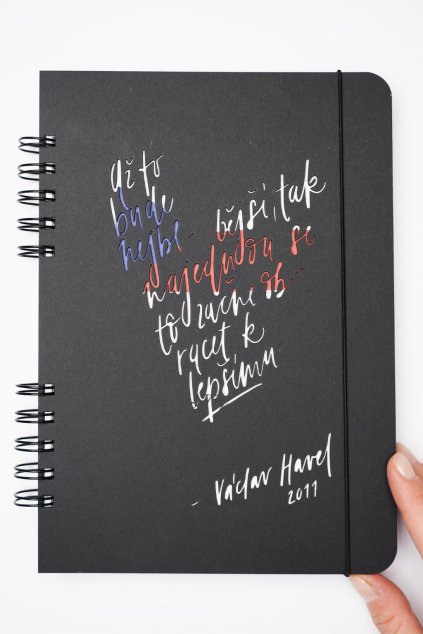 až to
bude
bude bějši, tak
nejbě-
najednou se
to začne ob-
racet k
lepšímu
- Václav Havel
2011